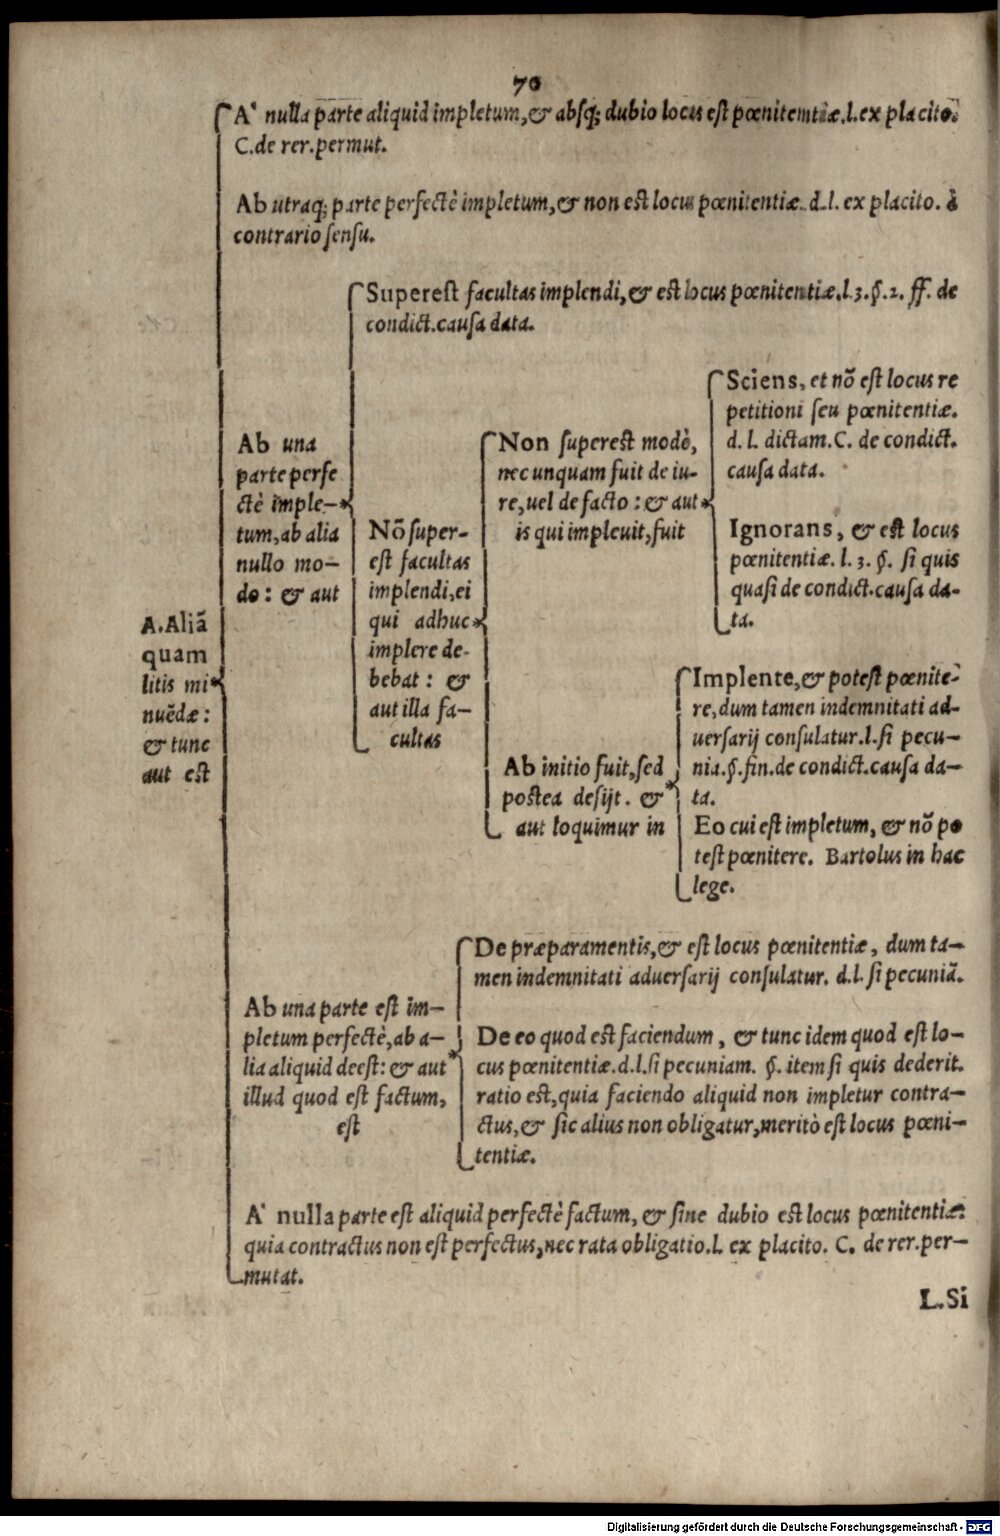 70
A' nulla parte aliquid impletum, & absq; dubio locus est pœnitentiæ. l. ex placito.
C. de rer. permut.
Ab utraq; parte perfectè impletum, & non est locus pœnitentiæ. d. l. ex placito. à
contrario sensu.
A. Aliã
quam
litis mi
nuẽdæ:
& tunc
aut est
Ab una
parte perfe
ctè imple-
tum, ab alia
nullo mo-
do: & aut
Superest facultas implendi, & est locus pœnitentiæ. l. 3. §. 2. ff. de
condict. causa data.
Nõ super-
est facultas
implendi, ei
qui adhuc
implere de-
bebat: &
aut illa fa-
cultas
Non superest modò,
nec unquam fuit de iu-
re, uel de facto: & aut
is qui impleuit, fuit
Sciens, et nõ est locus re
petitioni seu pœnitentiæ.
d. l. dictam. C. de condict.
causa data.
Ignorans, & est locus
pœnitentiæ. l. 3. §. si quis
quasi de condict. causa da-
ta.
Ab initio fuit, sed
postea desijt. &
aut loquimur in
Implente, & potest pœnite-
re, dum tamen indemnitati ad-
uersarij consulatur. l. si pecu-
nia. §. fin. de condict. causa da-
ta.
Eo cui est impletum, & nõ po
test pœnitere. Bartolus in hac
lege.
Ab una parte est im-
pletum perfectè, ab a-
lia aliquid deest: & aut
illud quod est factum,
est
De præparamentis, & est locus pœnitentiæ, dum ta-
men indemnitati aduersarij consulatur. d. l. si pecuniã.
De eo quod est faciendum, & tunc idem quod est lo-
cus pœnitentiæ. d. l. si pecuniam. §. item si quis dederit.
ratio est, quia faciendo aliquid non impletur contra-
ctus, & sic alius non obligatur, meritò est locus pœni-
tentiæ.
A' nulla parte est aliquid perfectè factum, & sine dubio est locus pœnitentiæ:
quia contractus non est perfectus, nec rata obligatio. l. ex placito. C. de rer. per-
mutat.
L. Si
Digitalisierung gefördert durch die Deutsche Forschungsgemeinschaft - DFG